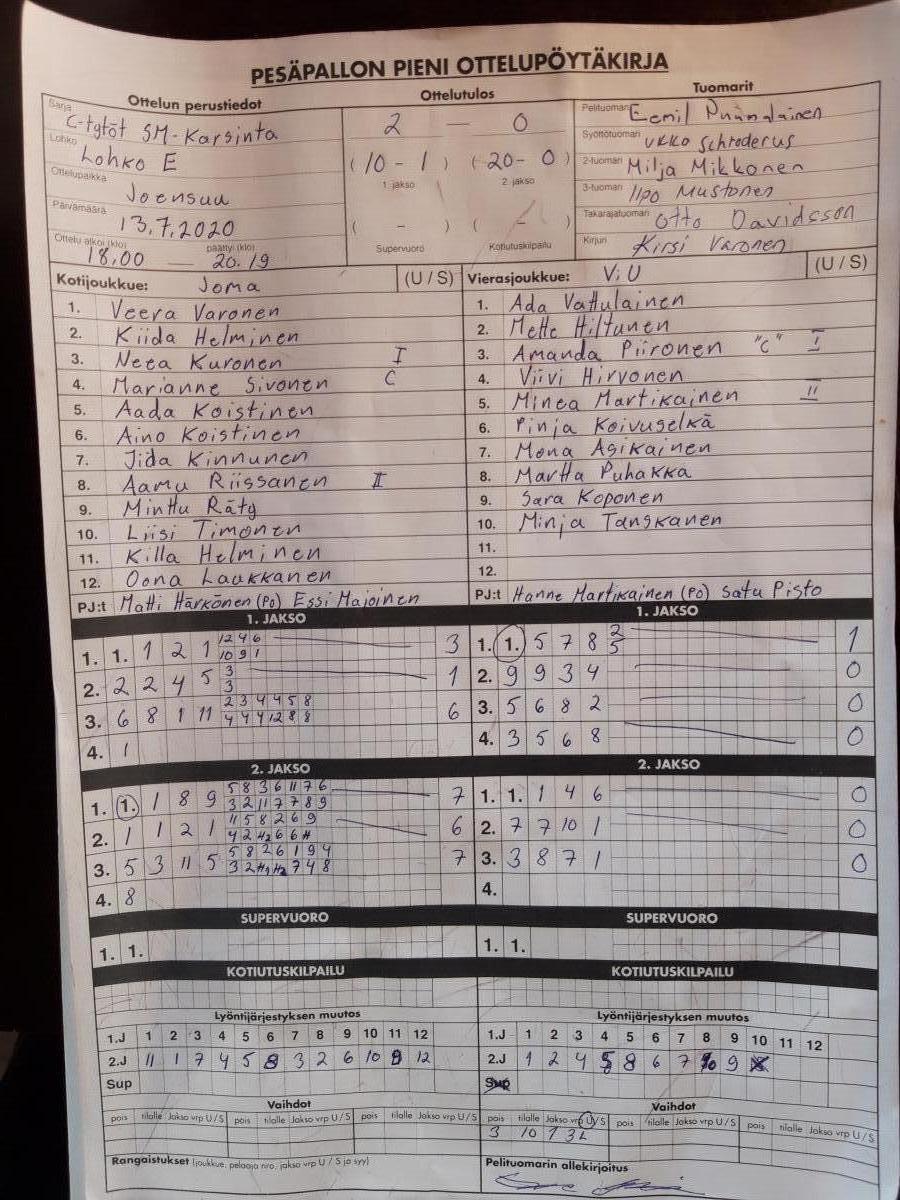 PESÄPALLON PIENI OTTELUPÖYTÄKIRJA
Ottelun perustiedot Ottelutulos Tuomarit
Sarja C-tytöt SM-Karsinta
Lohko Lohko E
Ottelupaikka Joensuu
Päivämäärä 13.7.2020
Ottelu alkoi (klo) 18.00 — päättyi (klo) 20.19
2 — 0
(10 - 1) (20 - 0)
1. jakso 2. jakso
( - ) ( - )
Supervuoro Kotiutuskilpailu
Pelituomari Eemil
Syöttötuomari Ukko Schroderus
2-tuomari Milja Mikkonen
3-tuomari Ilpo Mustonen
Takarajatuomari Otto Davidsson
Kirjuri Kirsi Varonen
Kotijoukkue: Joma (U / S) Vierasjoukkue: ViU (U / S)
1. Veera Varonen 1. Ada Vattulainen
2. Kiida Helminen 2. Mette Hiltunen
3. Neea Kuronen I 3. Amanda Piironen "C" I
4. Marianne Sivonen C 4. Viivi Hirvonen
5. Aada Koistinen 5. Minea Martikainen II
6. Aino Koistinen 6. Pinja Koivuselkä
7. Jida Kinnunen 7. Mona Asikainen
8. Aamu Riissanen II 8. Martta Puhakka
9. Minttu Räty 9. Sara Koponen
10. Liisi Timonen 10. Minja Tanskanen
11. Killa Helminen 11.
12. Oona Laukkanen 12.
PJ:t Matti Härkönen (PO) Essi Majoinen PJ:t Hanne Martikainen (PO) Satu Pisto
1. JAKSO 1. JAKSO
1. 1. 1 2 1 12 4 6 3 1. 1. 5 7 8 2 1
10 9 1 5
2. 2 2 4 5 3 1 2. 9 9 3 4 0
3
3. 6 8 1 11 2 3 4 4 5 8 6 3. 5 6 8 2 0
4 4 4 12 8 8
4. 1 4. 3 5 6 8 0
2. JAKSO 2. JAKSO
1. 1. 1 8 9 5 8 3 6 11 7 6 7 1. 1. 1 4 6 0
3 2 11 7 7 8 9
2. 1 1 2 1 11 5 8 2 6 9 6 2. 7 7 10 1 0
4 2 H2 6 6 H
3. 5 3 11 5 5 8 2 6 1 9 4 7 3. 3 8 7 1 0
3 2 H1 H2 7 4 8
4. 8 4.
SUPERVUORO SUPERVUORO
1. 1. 1. 1.
KOTIUTUSKILPAILU KOTIUTUSKILPAILU
Lyöntijärjestyksen muutos Lyöntijärjestyksen muutos
1.J 1 2 3 4 5 6 7 8 9 10 11 12 1.J 1 2 3 4 5 6 7 8 9 10 11 12
2.J 11 1 7 4 5 8 3 2 6 10 9 12 2.J 1 2 4 5 8 6 7 10 9
Sup Sup
Vaihdot Vaihdot
pois tilalle Jakso vrp U / S pois tilalle Jakso vrp U / S pois tilalle Jakso vrp U / S pois tilalle Jakso vrp U / S pois tilalle Jakso vrp U / S pois tilalle Jakso vrp U / S
3 10 1 3L
Rangaistukset (joukkue, pelaaja nro, jakso vrp U / S ja syy) Pelituomarin allekirjoitus